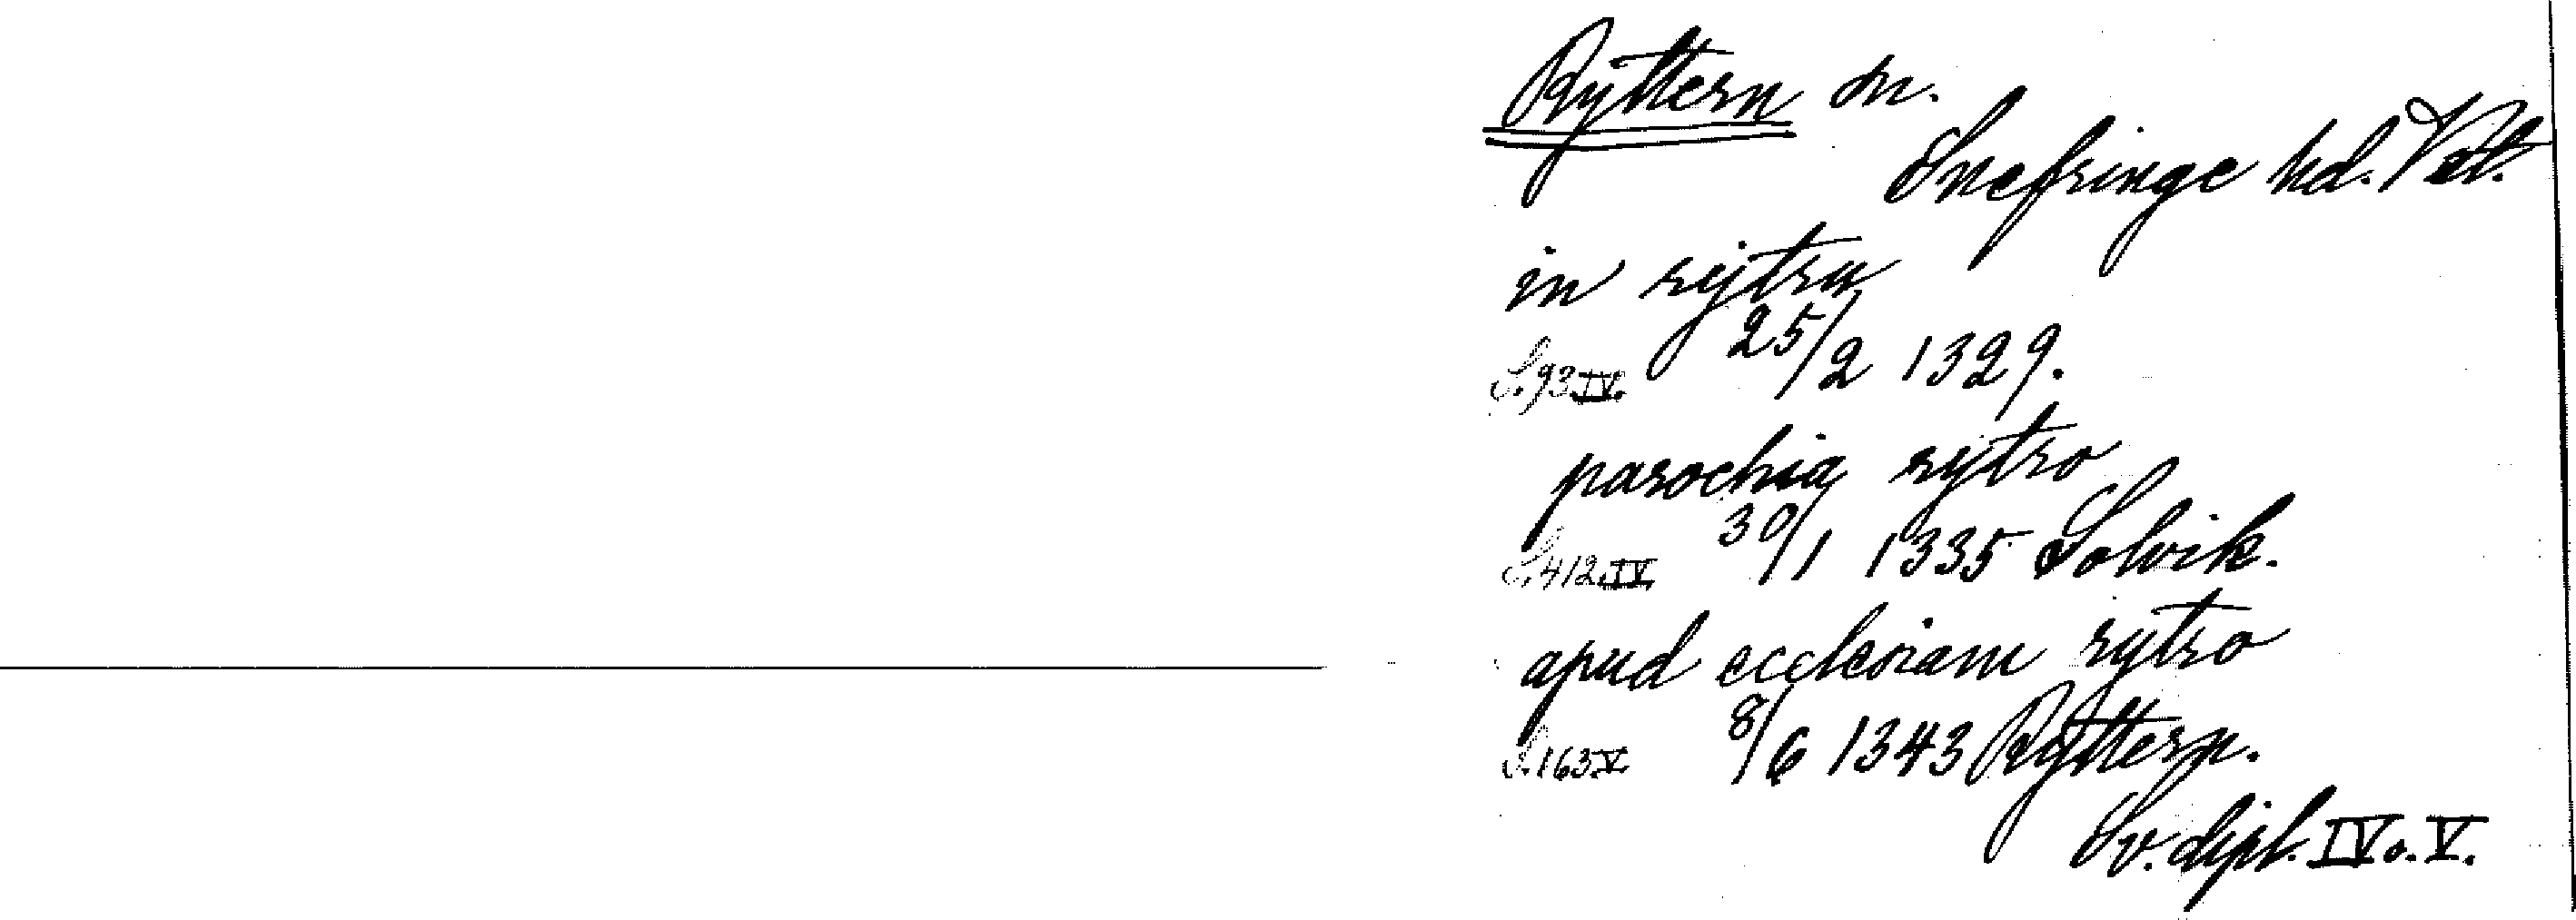 Ryttern sn.
Snefringe hd. Vstl.
in rytru
S. 93 IV. 25/2 1329.
parochia rytro
S. 412 IV 30/1 1335 Solvik.
apud ecclesiam rytro
S. 163 V. 8/6 1343 Ryttern.
Sv. dipl. IV o. V.